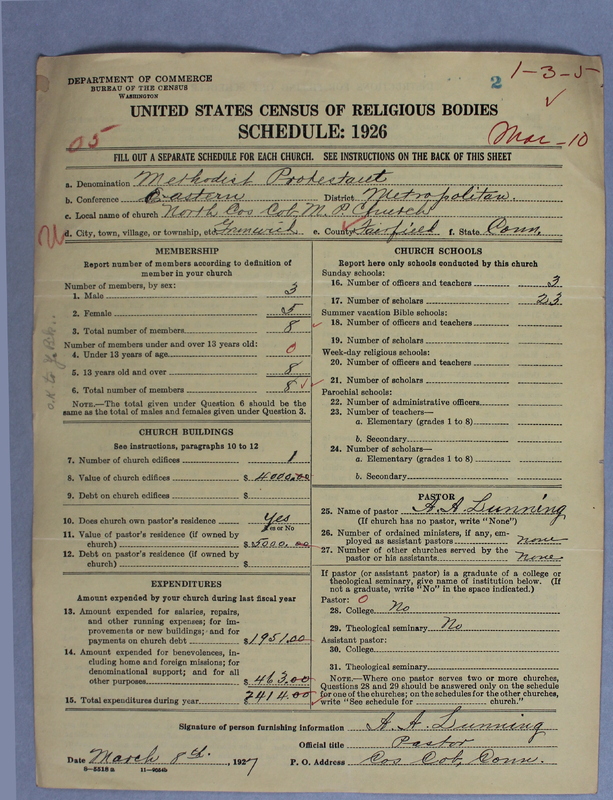 DEPARTMENT OF COMMERCE
BUREAU OF THE CENSUS
WASHINGTON
2
1-3-5
UNITED STATES CENSUS OF RELIGIOUS BODIES
SCHEDULE: 1926
05
Mar-10
FILL OUT A SEPARATE SCHEDULE FOR EACH CHURCH. SEE INSTRUCTIONS ON THE BACK OF THIS SHEET
a. Denomination Methodist Protestant
b. Conference Eastern District Metropolitan.
c. Local name of church North Cos Cob, M. P. Church
d. City, town, village, or township, etc. Greenwich e. County Fairfield f. State Conn.
MEMBERSHIP
Report number of members according to definition of
member in your church
Number of members, by sex:
1. Male 3
2. Female 5
3. Total number of members 8
Number of members under and over 13 years old:
4. Under 13 years of age 0
5. 13 years old and over 8
6. Total number of members 8
NOTE.—The total given under Question 6 should be
same as the total of males and females given under Question 3.
CHURCH BUILDINGS
See instructions, paragraphs 10 to 12
7. Number of church edifices 1
8. Value of church edifices $ 4000.00
9. Debt on church edifices $
10. Does church own pastor's residence Yes
Yes or No
11. Value of pastor's residence (if owned by
church) $ 5000.00
12. Debt on pastor's residence (if owned by
church) $
EXPENDITURES
Amount expended by your church during last fiscal year
13. Amount expended for salaries, repairs,
and other running expenses; for im-
provements or new buildings; and for
payments on church debt $ 1951.00
14. Amount expended for benevolences, in-
cluding home and foreign missions; for
denominational support; and for all
other purposes $ 463.00
15. Total expenditures during year $ 2414.00
CHURCH SCHOOLS
Report here only schools conducted by this church
Sunday schools:
16. Number of officers and teachers 3
17. Number of scholars 23
Summer vacation Bible schools:
18. Number of officers and teachers
19. Number of scholars
Week-day religious schools:
20. Number of officers and teachers
21. Number of scholars
Parochial schools:
22. Number of administrative officers
23. Number of teachers—
a. Elementary (grades 1 to 8)
b. Secondary
24. Number of scholars—
a. Elementary (grades 1 to 8)
b. Secondary
PASTOR
25. Name of pastor A. A. Lunning
(If church has no pastor, write "None")
26. Number of ordained ministers, if any, em-
ployed as assistant pastors none
27. Number of other churches served by the
pastor or his assistants none
If pastor (or assistant pastor) is a graduate of a college or
theological seminary, give name of institution below. (If
not a graduate, write "No" in the space indicated.)
Pastor: 0
28. College No
29. Theological seminary No
Assistant pastor:
30. College
31. Theological seminary
NOTE.—Where one pastor serves two or more churches,
Questions 28 and 29 should be answered only on the schedule
for one of the churches; on the schedules for the other churches,
write "See schedule for church."
Signature of person furnishing information A. A. Lunning
Official title Pastor
Date March 8th, 1927 P. O. Address Cos Cob, Conn.
8-5518 a